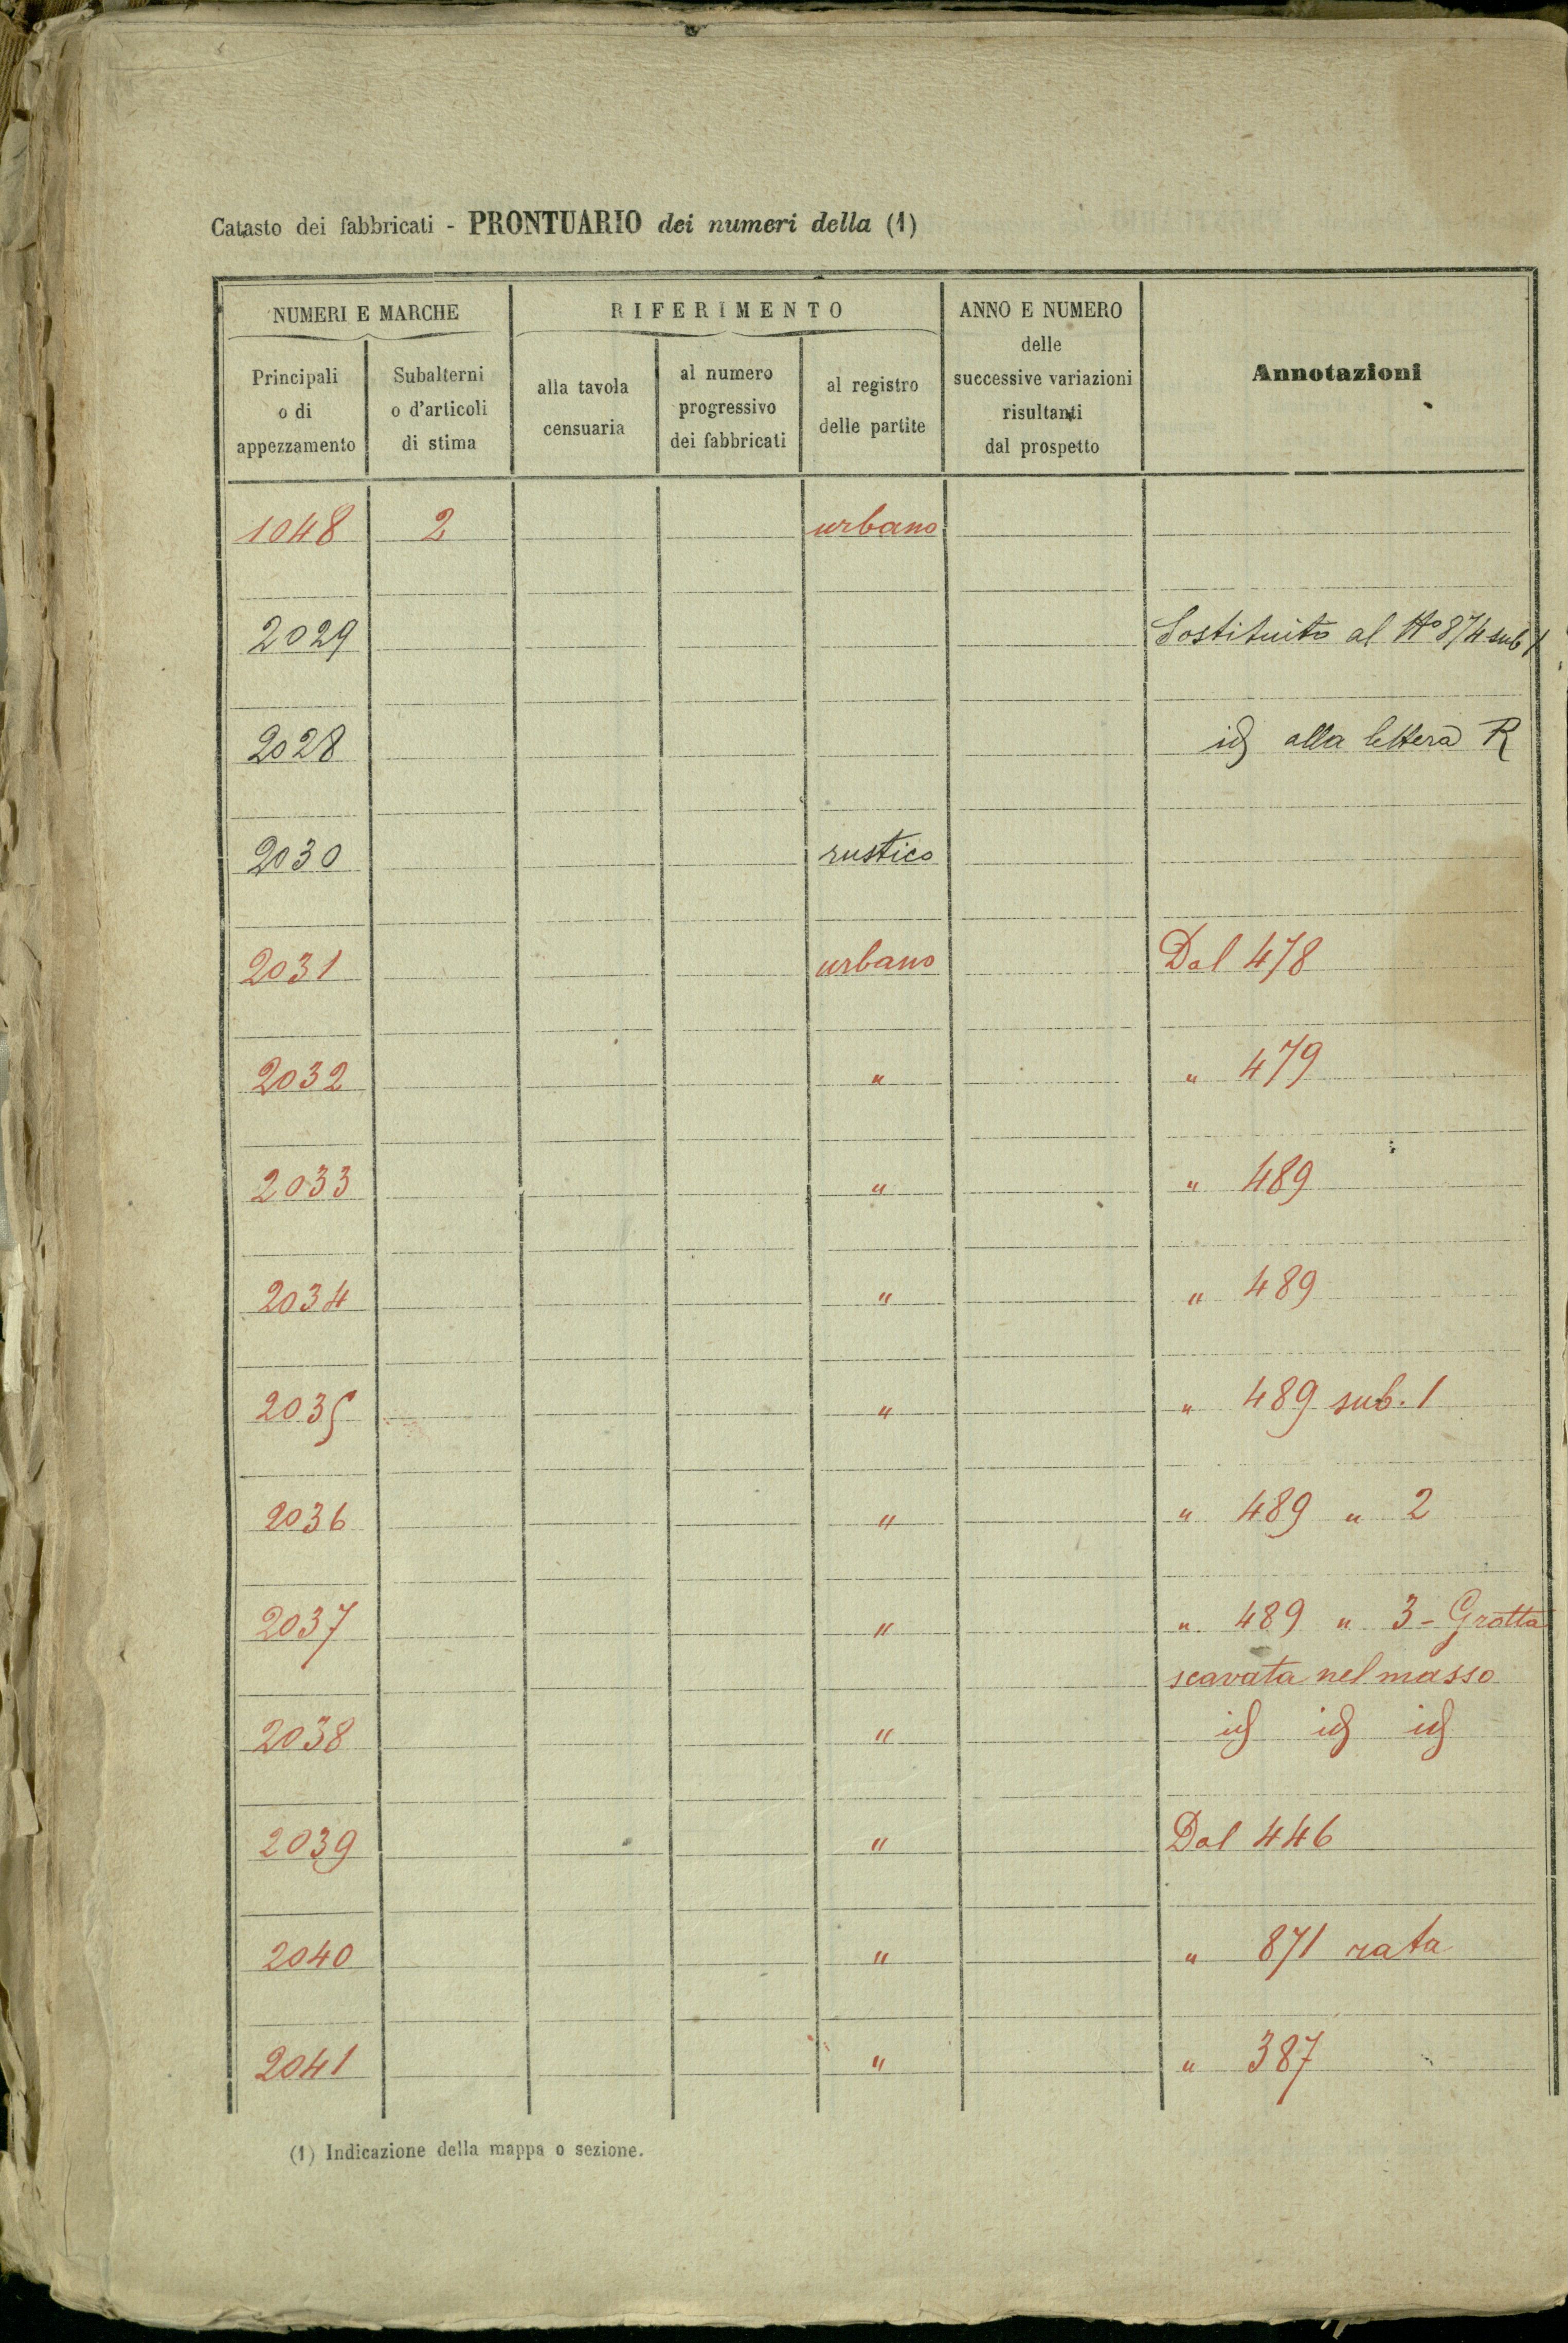 Catasto dei fabbricati - PRONTUARIO dei numeri della (1)
NUMERI E MARCHE
RIFERIMENTO
ANNO E NUMERO
delle
successive variazioni
risultanti
dal prospetto
Annotazioni
Principali
o di
appezzamento
Subalterni
o d'articoli
di stima
alla tavola
censuaria
al numero
progressivo
dei fabbricati
al registro
delle partite
1048 2 urbano
2029 Sostituito al No 874 sub 1
2028 id alla lettera R
2030 rustico
2031 urbano Dal 478
2032 " " 479
2033 " " 489
2034 " " 489
2035 " " 489 sub. 1
2036 " " 489 " 2
2037 " " 489 " 3 - Grotta
scavata nel masso
2038 " id id id
2039 " Dal 446
2040 " " 871 rata
2041 " " 387
(1) Indicazione della mappa o sezione.